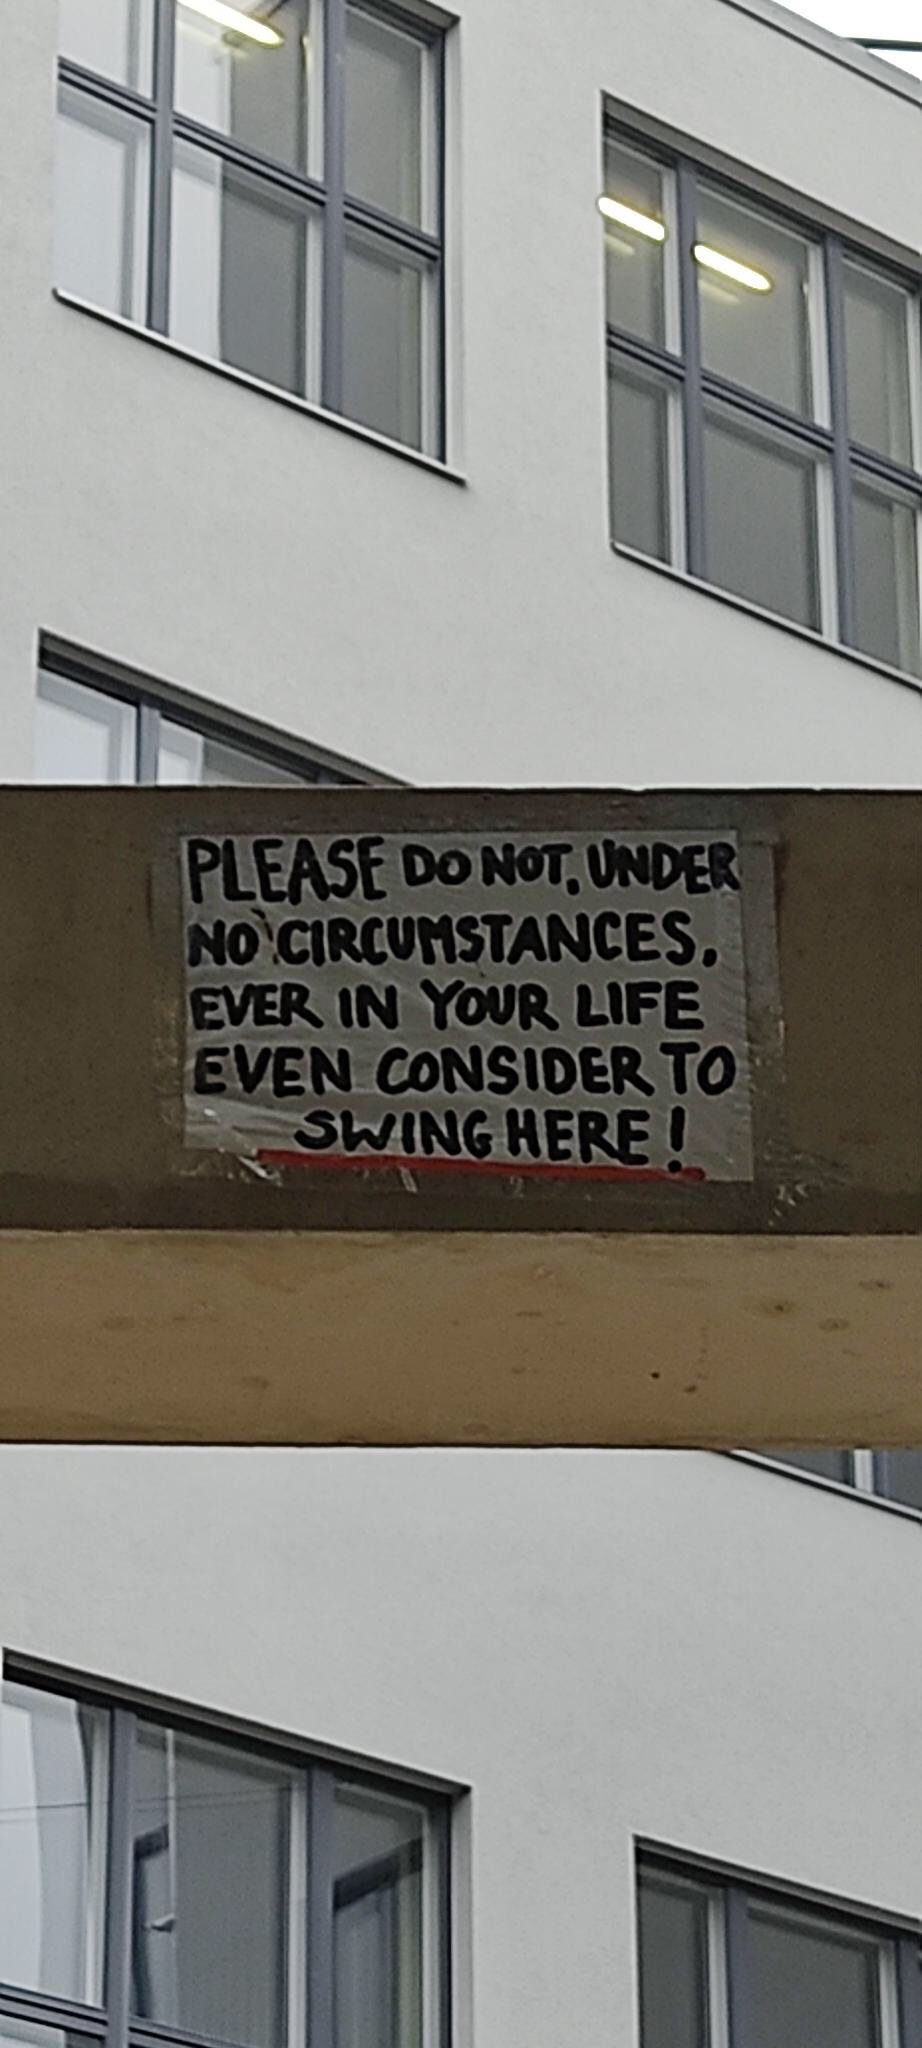 PLEASE DO NOT, UNDER
NO CIRCUMSTANCES,
EVER IN YOUR LIFE
EVEN CONSIDER TO
SWING HERE!